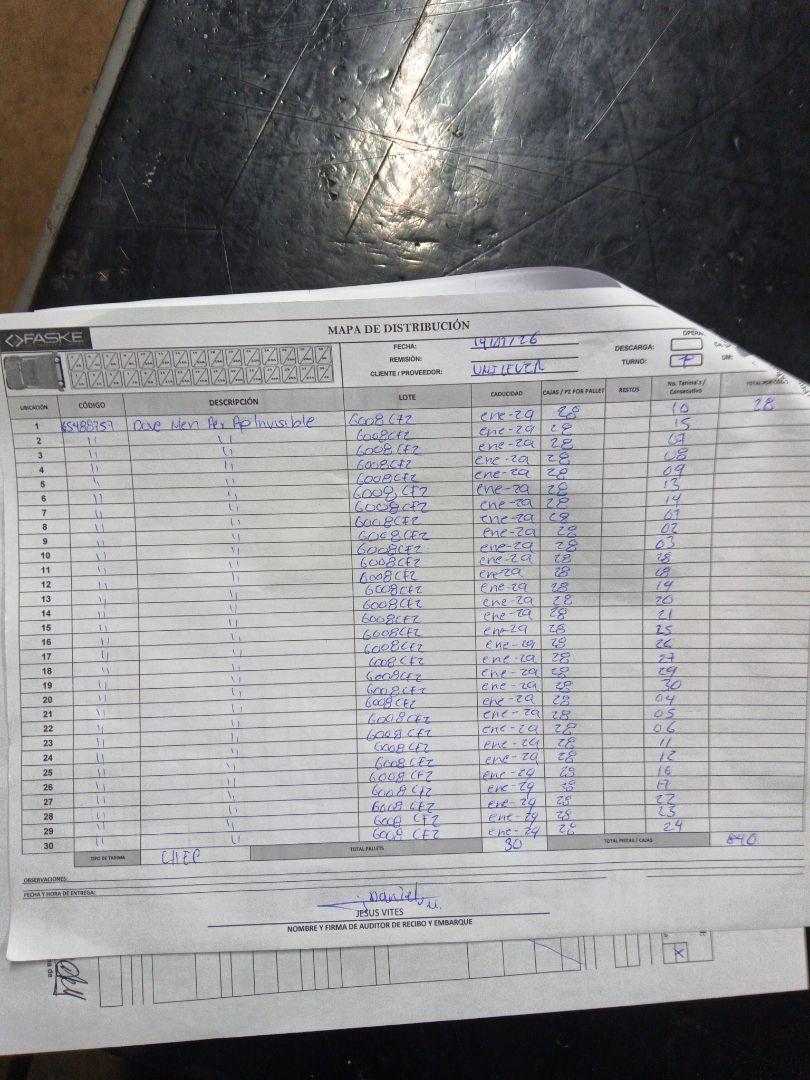 FASKE
MAPA DE DISTRIBUCIÓN
FECHA: 26
REMISIÓN:
CLIENTE / PROVEEDOR: UNILEVER
DESCARGA:
TURNO:
UM:
UBICACIÓN CÓDIGO DESCRIPCIÓN LOTE CADUCIDAD CAJAS / PZ POR PALLET RESTOS No. Tarima's / Consecutivo
1 Dove Men Invisible 6008CF2 ene-29 28 10 28
2 " " 6008CF2 ene-29 28 15
3 " " 6008CF2 ene-29 28 07
4 " " 6008CF2 ene-29 28 08
5 " " 6008CF2 ene-29 28 09
6 " " 6008CF2 ene-29 28 13
7 " " 6008CF2 ene-29 28 14
8 " " 6008CF2 ene-29 28 01
9 " " 6008CF2 ene-29 28 02
10 " " 6008CF2 ene-29 28 03
11 " " 6008CF2 ene-29 28
12 " " 6008CF2 ene-29 28
13 " " 6008CF2 ene-29 28 19
14 " " 6008CF2 ene-29 28 20
15 " " 6008CF2 ene-29 28 21
16 " " 6008CF2 ene-29 28 25
17 " " 6008CF2 ene-29 28 26
18 " " 6008CF2 ene-29 28 27
19 " " 6008CF2 ene-29 28 29
20 " " 6008CF2 ene-29 28 30
21 " " 6008CF2 ene-29 28 04
22 " " 6008CF2 ene-29 28 05
23 " " 6008CF2 ene-29 28 06
24 " " 6008CF2 ene-29 28 11
25 " " 6008CF2 ene-29 28 12
26 " " 6008CF2 ene-29 28 16
27 " " 6008CF2 ene-29 28 17
28 " " 6008CF2 ene-29 28 22
29 " " 6008CF2 ene-29 28 23
30 " " 6008CF2 ene-29 28 24
TIPO DE TARIMA CHEP TOTAL PALLETS 30 TOTAL PIEZAS / CAJAS 840
OBSERVACIONES:
FECHA Y HORA DE ENTREGA:
JESUS VITES
NOMBRE Y FIRMA DE AUDITOR DE RECIBO Y EMBARQUE
X